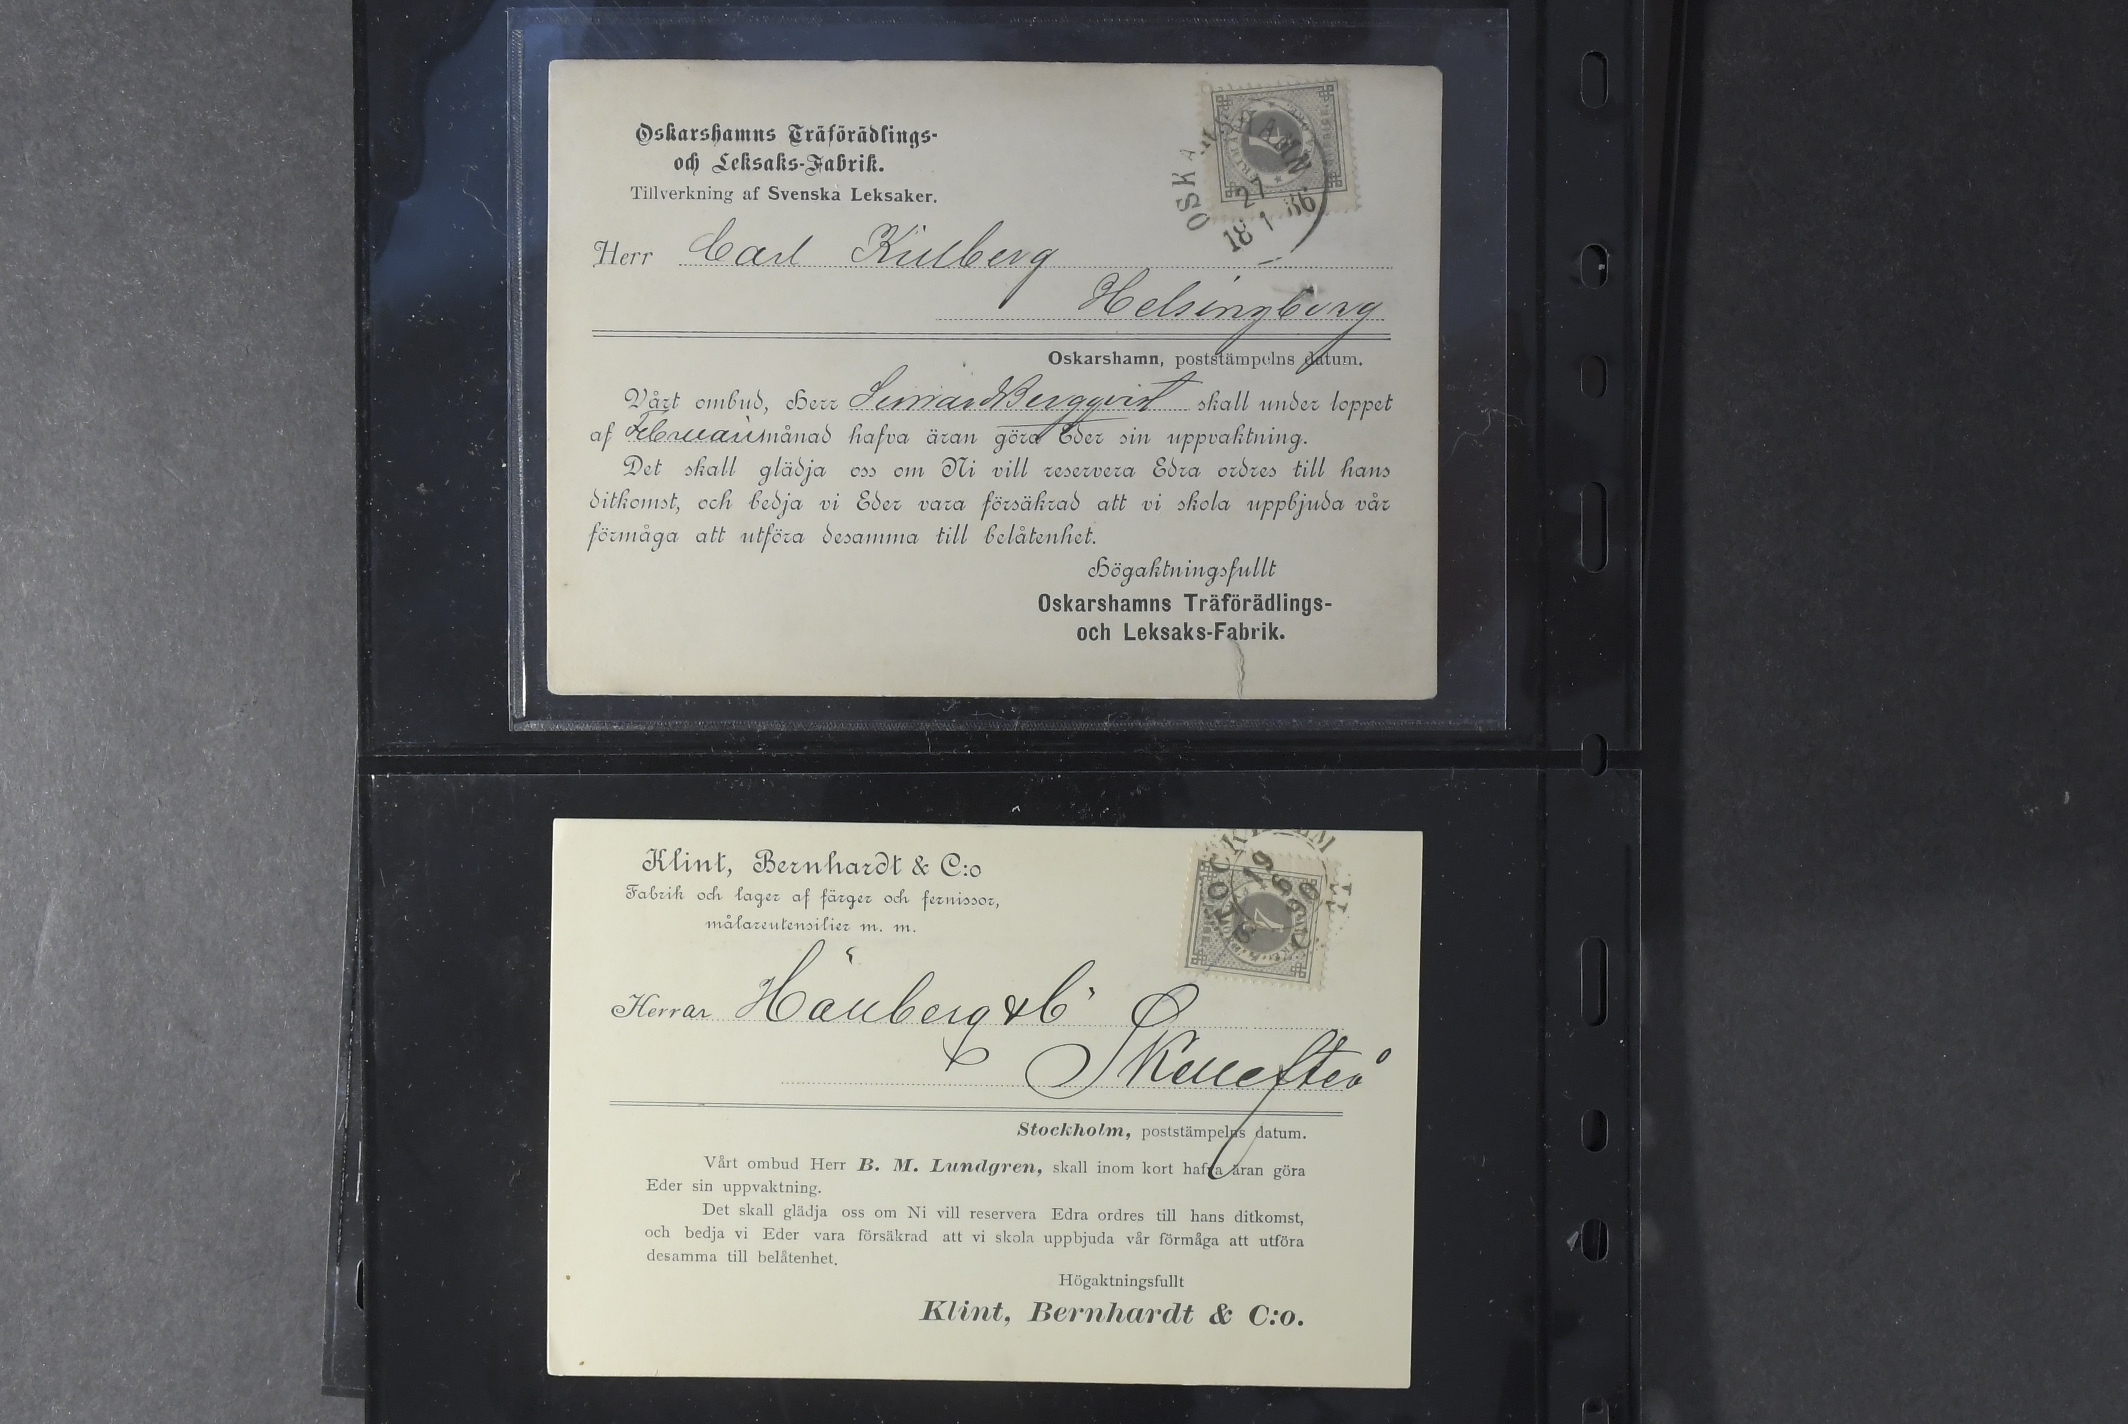 Oskarshamns Träförädlings-
och Leksaks-Fabrik.
Tillverkning af Svenska Leksaker.
OSKARSHAMN
27
18 1 86
Herr Carl Kullberg
Helsingborg
Oskarshamn, poststämpelns datum.
Vårt ombud, Herr Bergqvist skall under loppet
af Februari månad hafva äran göra Eder sin uppvaktning.
Det skall glädja oss om Ni vill reservera Edra ordres till hans
ditkomst, och bedja vi Eder vara försäkrad att vi skola uppbjuda vår
förmåga att utföra desamma till belåtenhet.
Högaktningsfullt
Oskarshamns Träförädlings-
och Leksaks-Fabrik.
Klint, Bernhardt & C:o
Fabrik och lager af färger och fernissor,
målareutensilier m. m.
STOCKHOLM
19
6
90
Herrar & C
Skellefteå
Stockholm, poststämpelns datum.
Vårt ombud Herr B. M. Lundgren, skall inom kort hafva äran göra
Eder sin uppvaktning.
Det skall glädja oss om Ni vill reservera Edra ordres till hans ditkomst,
och bedja vi Eder vara försäkrad att vi skola uppbjuda vår förmåga att utföra
desamma till belåtenhet.
Högaktningsfullt
Klint, Bernhardt & C:o.